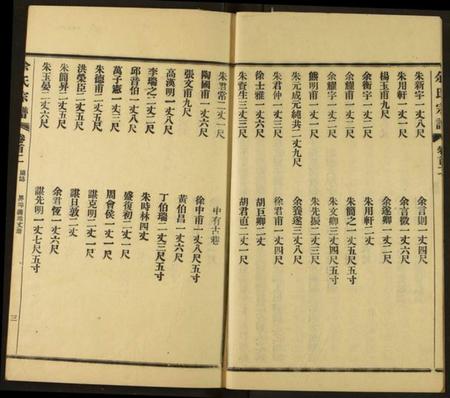 余氏宗譜
卷首二
朱新宇一丈八尺
余自則一丈四尺
朱用軒一丈一尺
余言徵一丈六尺
楊玉甫九尺
余遂卿一丈二尺
余衡宇一丈二尺
朱用軒二丈
余耀甫一丈二尺
朱簡之一丈五尺
余耀宇一丈二尺
朱文卿三丈四尺五寸
熊明甫一丈一尺
朱先振二丈三尺
朱元成元純共二丈九尺
余養遂三丈四尺
朱君仲一丈三尺
徐君甫一丈四尺
徐士雅一丈六尺
胡巨卿二丈
朱資生三丈三尺
胡君直二丈一尺
朱君常一丈一尺
中有古巷
陶國甫一丈六尺
徐中甫一丈八尺五寸
張文甫九尺
黃伯昌一丈六尺
高漢明一丈八尺
丁伯瑞二丈三尺五寸
李瑞之二丈二尺
朱時林四丈
邱音伯一丈八尺
盛復初二丈二尺
萬子憲一丈三尺
周會侯一丈一尺
朱德甫二丈五尺
諶克明二丈一尺
洪榮臣二丈五尺
諶日敦二丈
朱簡昇二丈五尺
余君恆一丈六尺
朱玉晏二丈六尺
諶先明一丈七尺五寸
余氏宗譜
卷首二
三